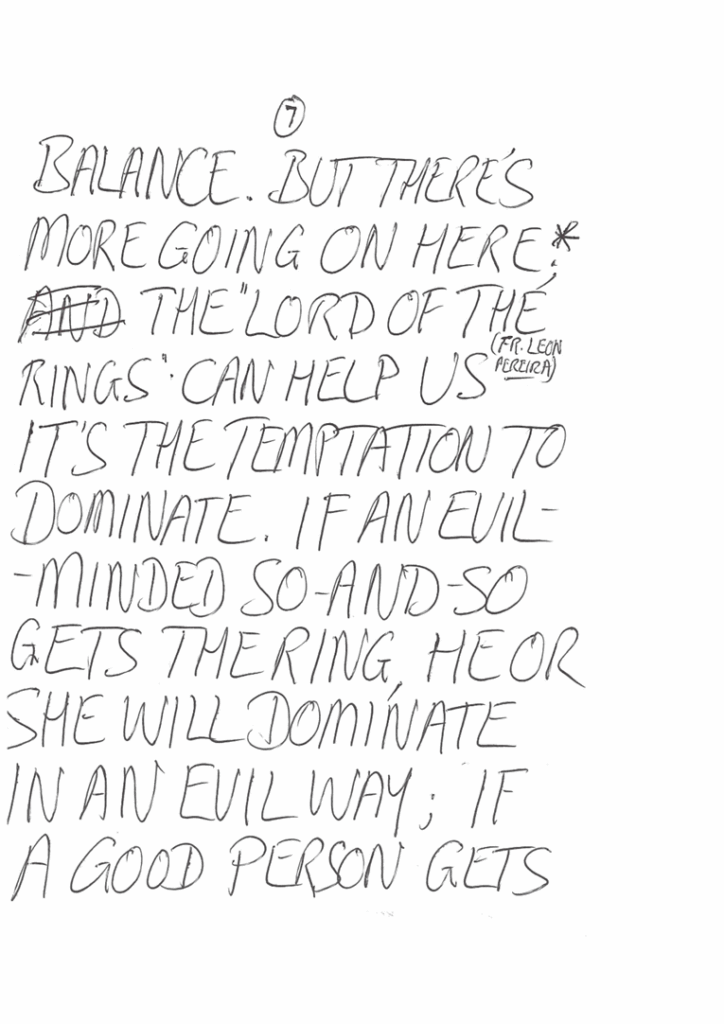 7
BALANCE. BUT THERE'S
MORE GOING ON HERE;*
AND THE "LORD OF THE
RINGS" CAN HELP US (FR. LEON
PEREIRA)
IT'S THE TEMPTATION TO
DOMINATE. IF AN EVIL-
-MINDED SO-AND-SO
GETS THE RING, HE OR
SHE WILL DOMINATE
IN AN EVIL WAY; IF
A GOOD PERSON GETS